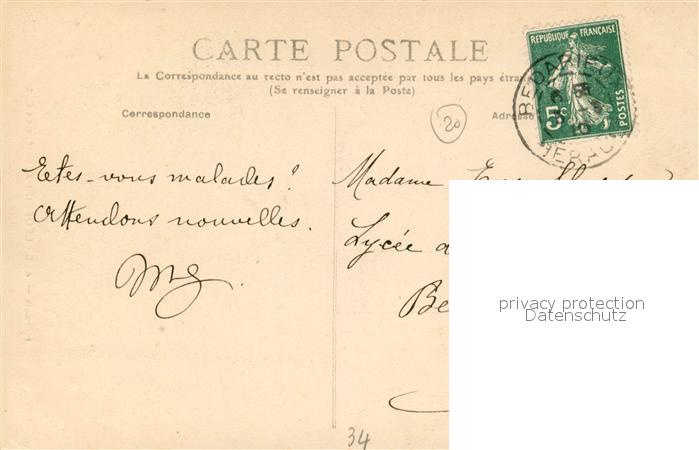 CARTE POSTALE
La Correspondance au recto n'est pas acceptée par tous les pays étran
(Se renseigner à la Poste)
Correspondance
Adresse
20
REPUBLIQUE FRANÇAISE
5c
POSTES
BEDARIEUX
HERAULT
Etes-vous malades?
Attendons nouvelles.
Madame
Lycée
Be
privacy protection
Datenschutz
34